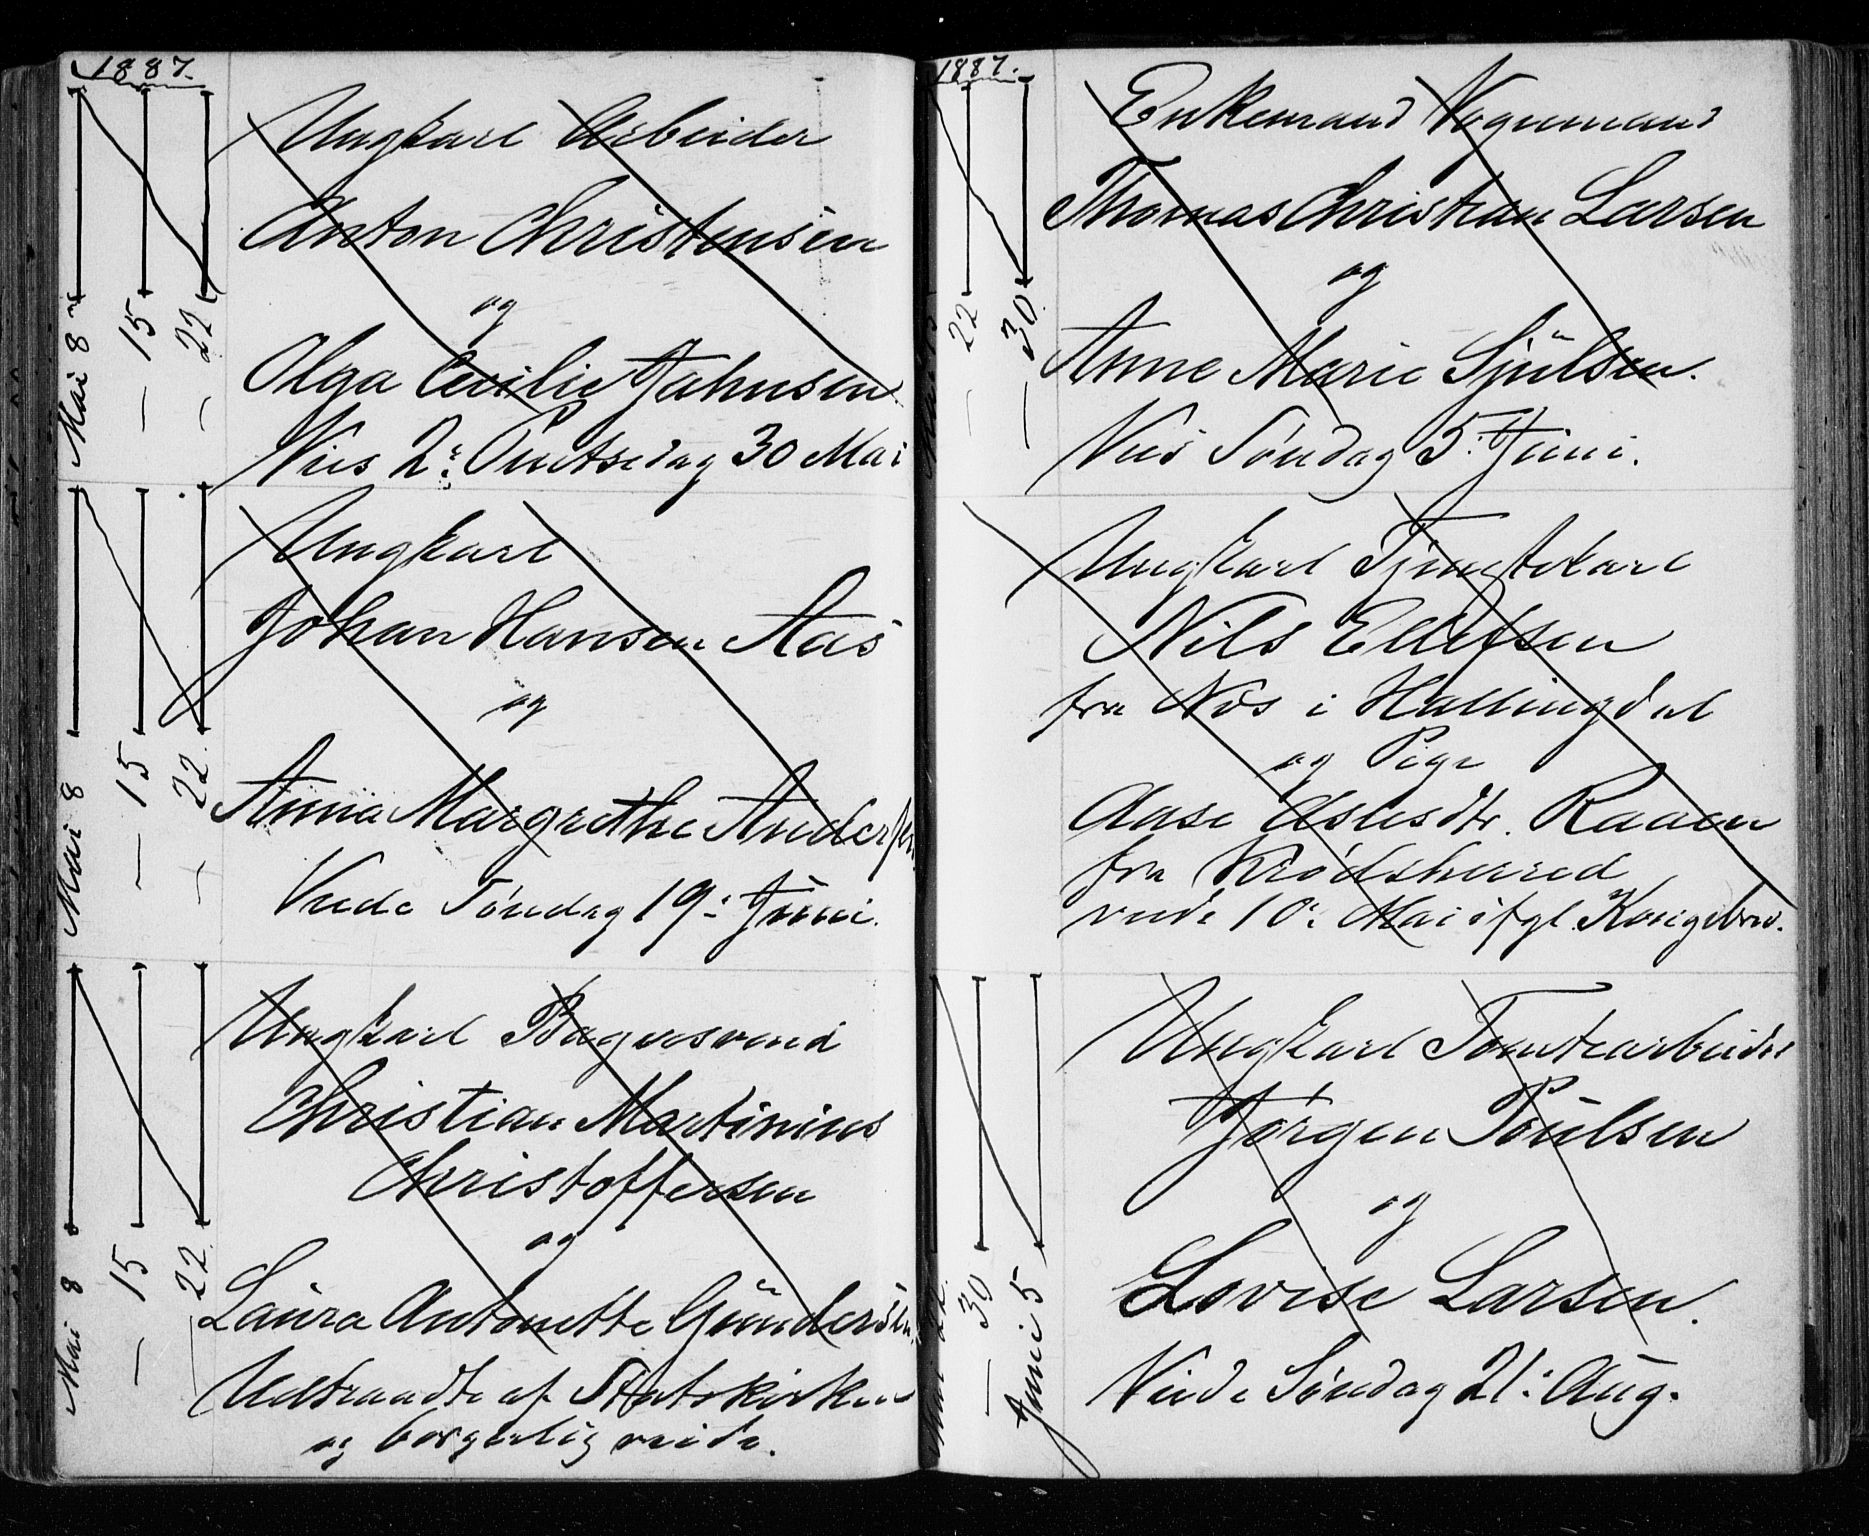 1887.
Mai 8
— 15
— 22
Ungkarl Arbeider
Anton Christensen
og
Olga Cecilie Jahnsen
Vies 2: Pintsedag 30 Mai
Mai 8
— 15
— 22
Ungkarl
Johan Hansen Aas
og
Anna Margrethe Andersen
Viede Søndag 19: Juni.
Mai 8
— 15
— 22
Ungkarl Bagersvend
Christian Martinius
Christoffersen
og
Laura Antonette Gundersen
Udtraadte af Statskirken
og borgerlig viede.
1887.
— 22
— 30
Enkemand Vognmand
Thomas Christian Larsen
og
Anne Marie Sjulsen.
Vies Søndag 5: Juni.
Ungkarl Tjenstekarl
Nils Ellefsen
fra Næs i Hallingdal
og Pige
Aase Aslesdtr. Raaen
fra Krødsherred
viede 10: Mai ifgl. Kongebrev.
Mai 22.
— 30
Juni 5
Ungkarl Tomtearbeider
Jørgen Poulsen
og
Lovise Larsen.
Viede Søndag 21: Aug.